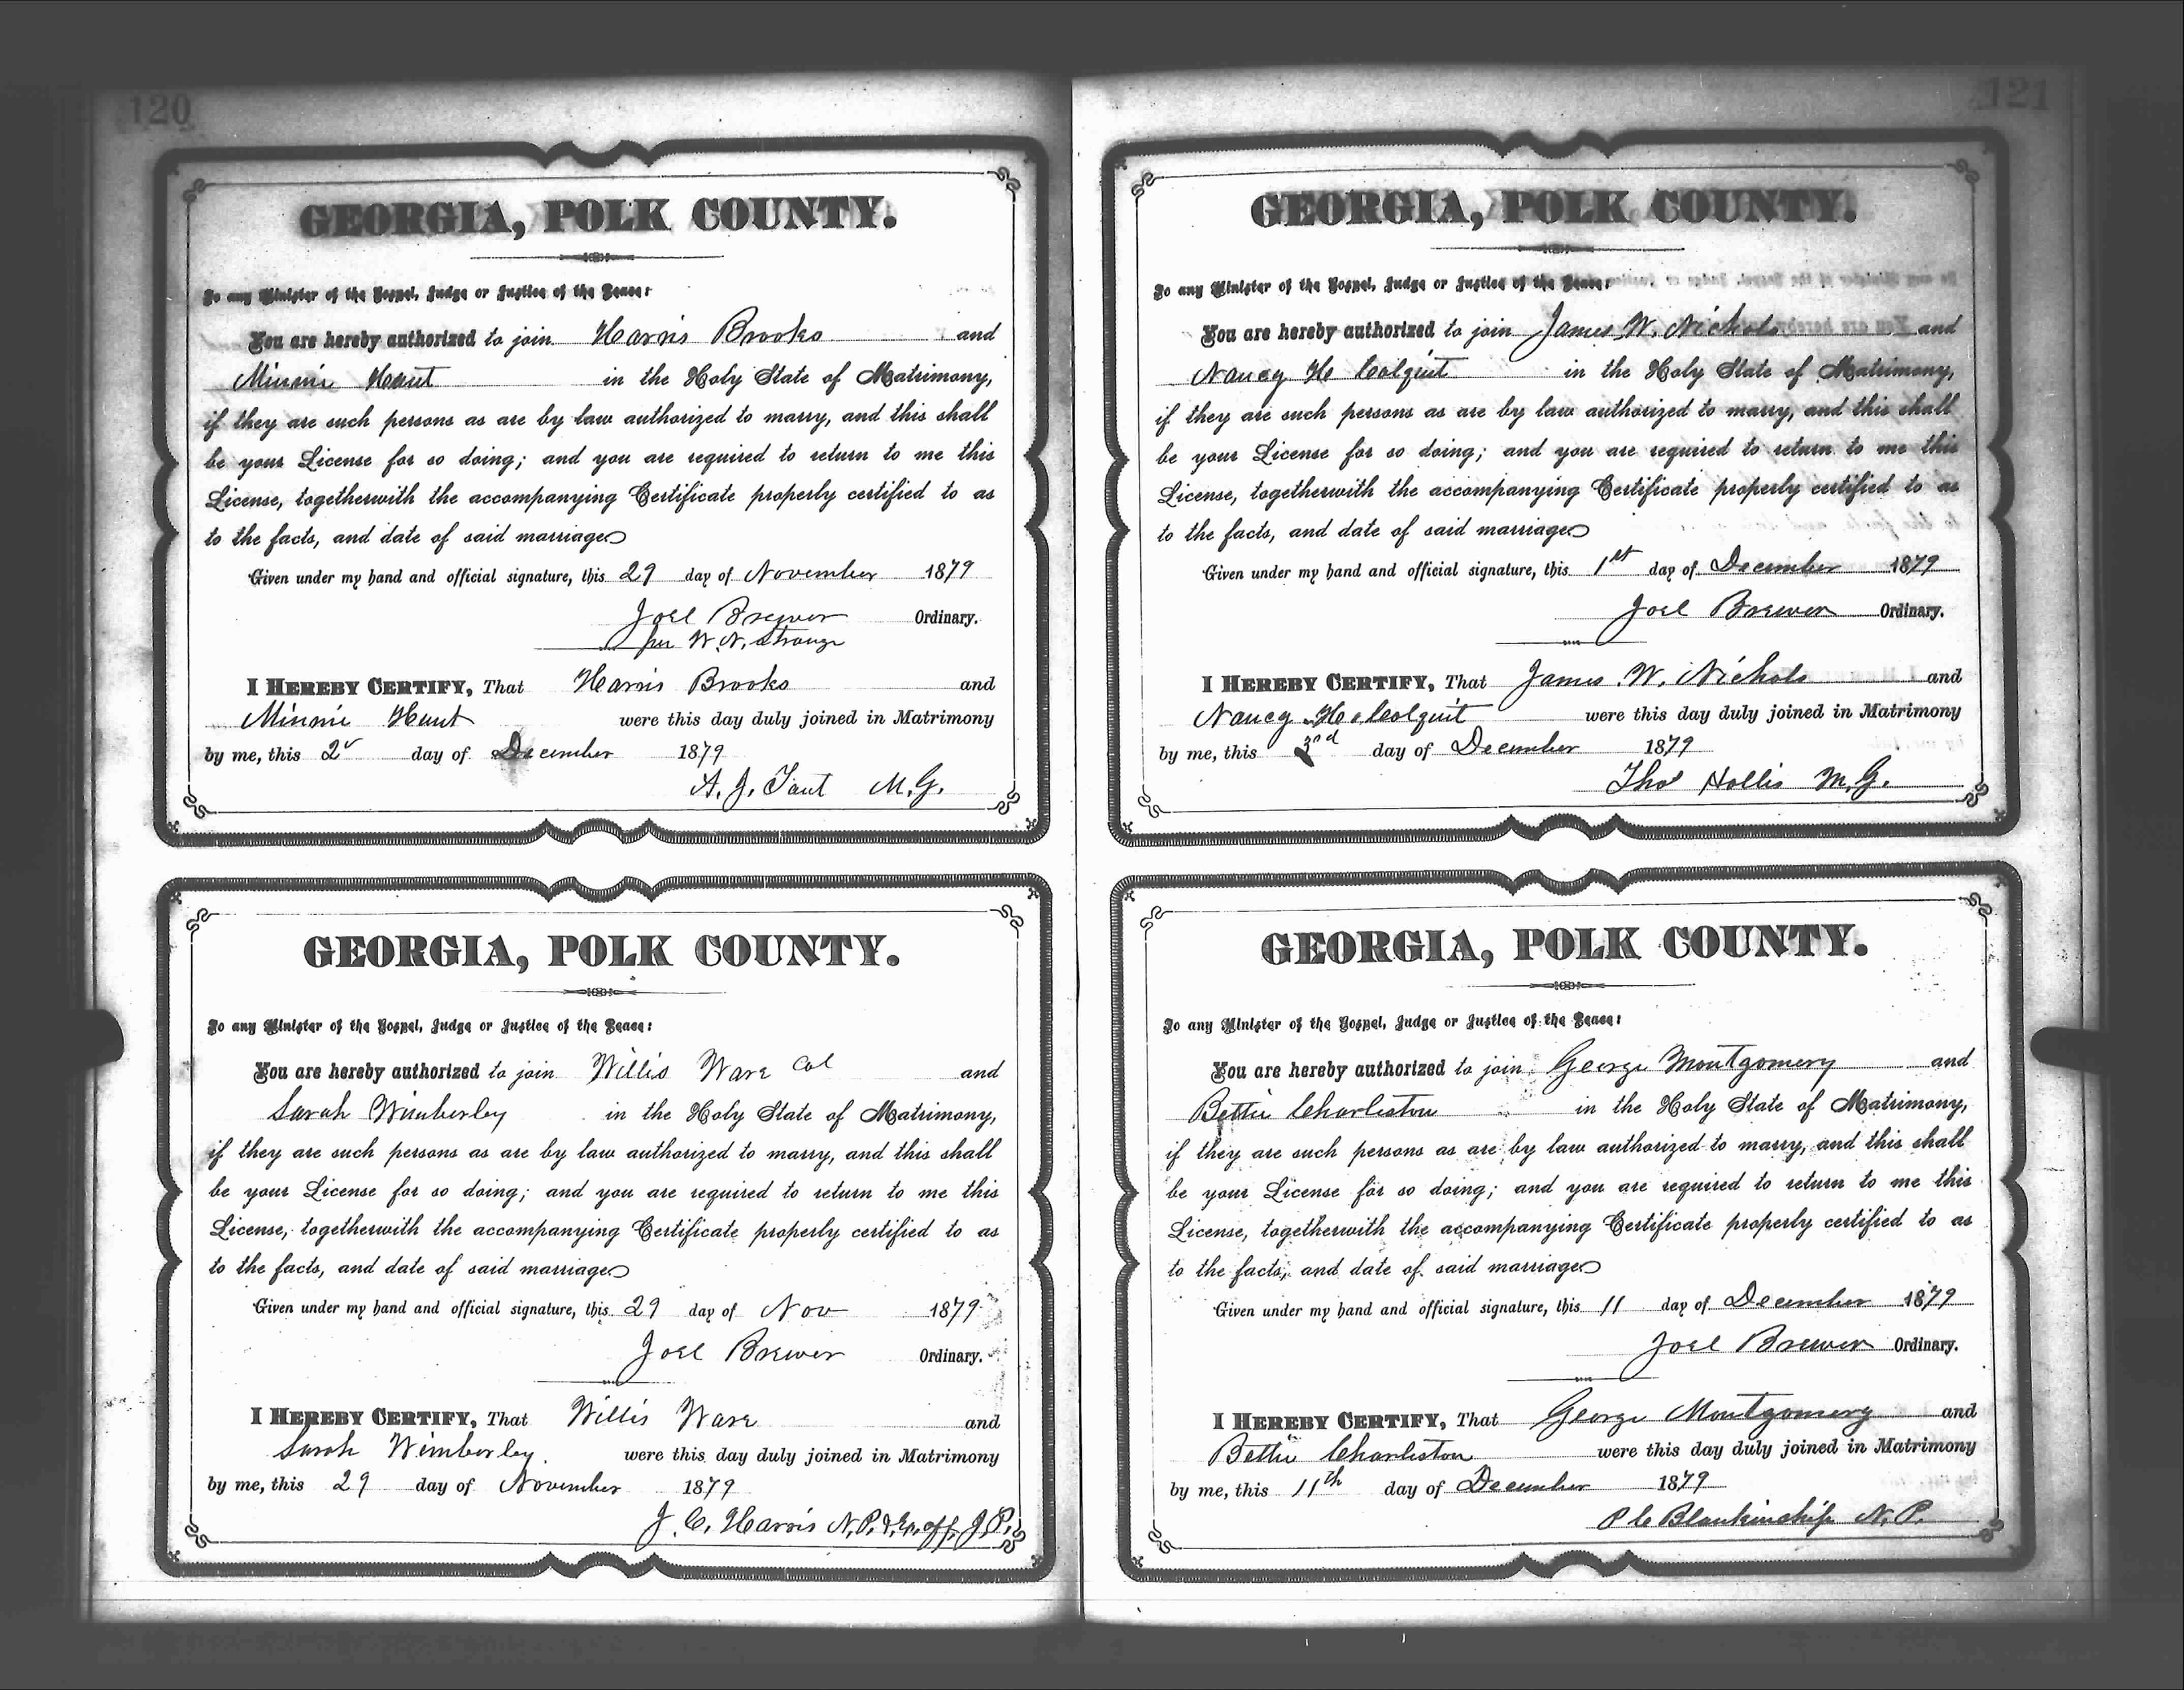 120
GEORGIA, POLK COUNTY.
To any Minister of the Gospel, Judge or Justice of the Peace:
You are hereby authorized to join Harris Brooks and
Minnie Hunt in the Holy State of Matrimony,
if they are such persons as are by law authorized to marry, and this shall
be your License for so doing; and you are required to return to me this
License, togetherwith the accompanying Certificate properly certified to as
to the facts, and date of said marriage
Given under my hand and official signature, this 29 day of November 1879
Joel Brewer Ordinary.
per W. N. Strange
I HEREBY CERTIFY, That Harris Brooks and
Minnie Hunt were this day duly joined in Matrimony
by me, this 2 day of December 1879
A. J. M. G.
GEORGIA, POLK COUNTY.
To any Minister of the Gospel, Judge or Justice of the Peace:
You are hereby authorized to join Willis Ware Col and
Sarah Wimberley in the Holy State of Matrimony,
if they are such persons as are by law authorized to marry, and this shall
be your License for so doing; and you are required to return to me this
License, togetherwith the accompanying Certificate properly certified to as
to the facts, and date of said marriage
Given under my hand and official signature, this 29 day of Nov 1879
Joel Brewer Ordinary.
I HEREBY CERTIFY, That Willis Ware and
Sarah Wimberley. were this day duly joined in Matrimony
by me, this 29 day of November 1879
J. C. Harris N. P. & Ex. off. J. P.
121
GEORGIA, POLK COUNTY.
To any Minister of the Gospel, Judge or Justice of the Peace:
You are hereby authorized to join James W. Nichols and
Nancy H Colquit in the Holy State of Matrimony,
if they are such persons as are by law authorized to marry, and this shall
be your License for so doing; and you are required to return to me this
License, togetherwith the accompanying Certificate properly certified to as
to the facts, and date of said marriage
Given under my hand and official signature, this 1st day of December 1879
Joel Brewer Ordinary.
I HEREBY CERTIFY, That James W. Nichols and
Nancy H. Colquit were this day duly joined in Matrimony
by me, this 3rd day of December 1879
Thos Hollis M. G.
GEORGIA, POLK COUNTY.
To any Minister of the Gospel, Judge or Justice of the Peace:
You are hereby authorized to join George Montgomery and
Bettie Charleston in the Holy State of Matrimony,
if they are such persons as are by law authorized to marry, and this shall
be your License for so doing; and you are required to return to me this
License, togetherwith the accompanying Certificate properly certified to as
to the facts, and date of said marriage
Given under my hand and official signature, this 11 day of December 1879
Joel Brewer Ordinary.
I HEREBY CERTIFY, That George Montgomery and
Bettie Charleston were this day duly joined in Matrimony
by me, this 11th day of December 1879
P C Blankinship N. P.